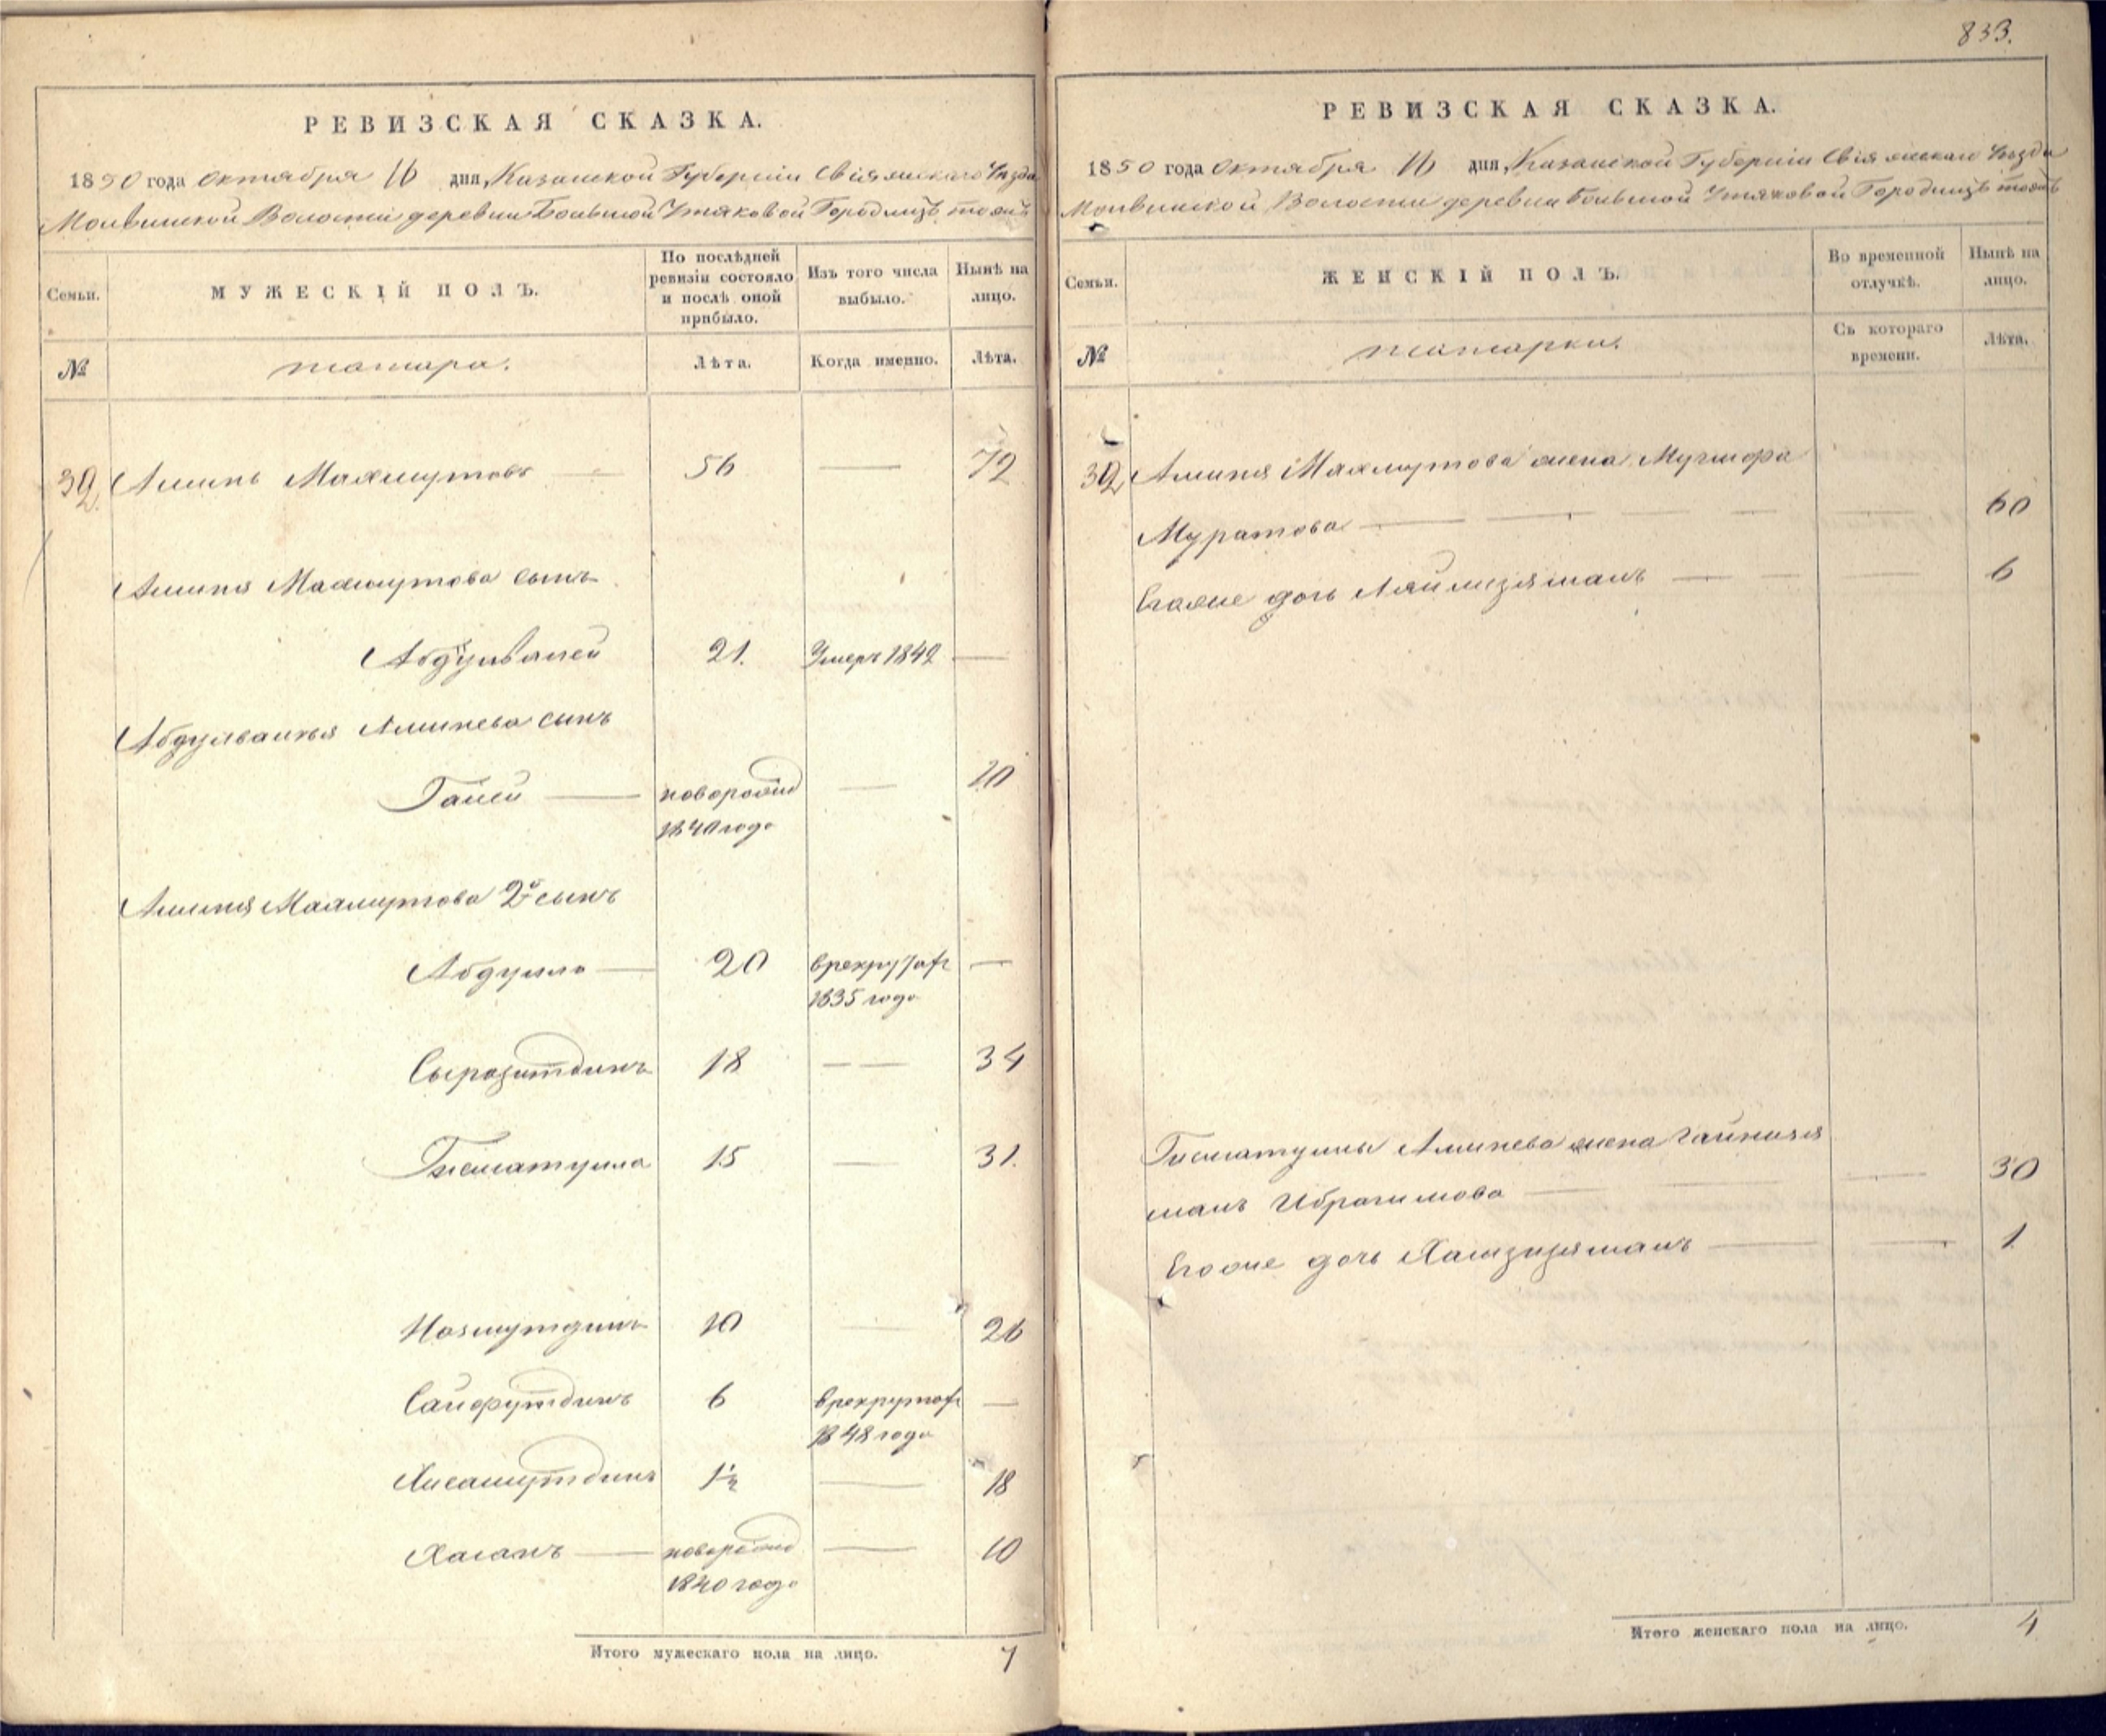 833.
РЕВИЗСКАЯ СКАЗКА.
1850 года октября 16 дня, Казанской Губернии Свіяжскаго Уѣзда
Молвинской Волости деревни Большой Утяковой Городище тожъ
Семьи.
МУЖЕСКІЙ ПОЛЪ.
По послѣдней ревизіи состояло и послѣ оной прибыло.
Изъ того числа выбыло.
Нынѣ на лицо.
№
татара.
Лѣта.
Когда именно.
Лѣта.
32 Аминь Махмутовъ 56 72
Аминя Махмутова сынъ
Абдулвалей 21. Умеръ 1842
Абдулвалея Аминева сынъ
Ганей новорожд 10
1840 года
Аминя Махмутова 2й сынъ
Абдулла 20 врекрутах
1835 года
Сыразитдинъ 18 34
Гисматулла 15 31.
Назмутдинъ 10 26
Сайфутдинъ 6 врекрутах
1848 года
Хисамутдинъ 1½ 18
Хасанъ новорожд 10
1840 года
Итого мужескаго пола на лицо. 7
РЕВИЗСКАЯ СКАЗКА.
1850 года октября 16 дня, Казанской Губерніи Свіяжскаго Уѣзда
Молвинской Волости деревни Большой Утяковой Городище тожъ
Семьи.
ЖЕНСКІЙ ПОЛЪ.
Во временной отлучкѣ.
Нынѣ на лицо.
№
татарки.
Съ котораго времени.
Лѣта.
32 Аминя Махмутова жена
Муратова 60
Егоже дочь Ляйлизямалъ 6
Гисматуллы Аминева жена Гайнизя
малъ Ибрагимова 30
Егоже дочь 1
Итого женскаго пола на лицо. 4